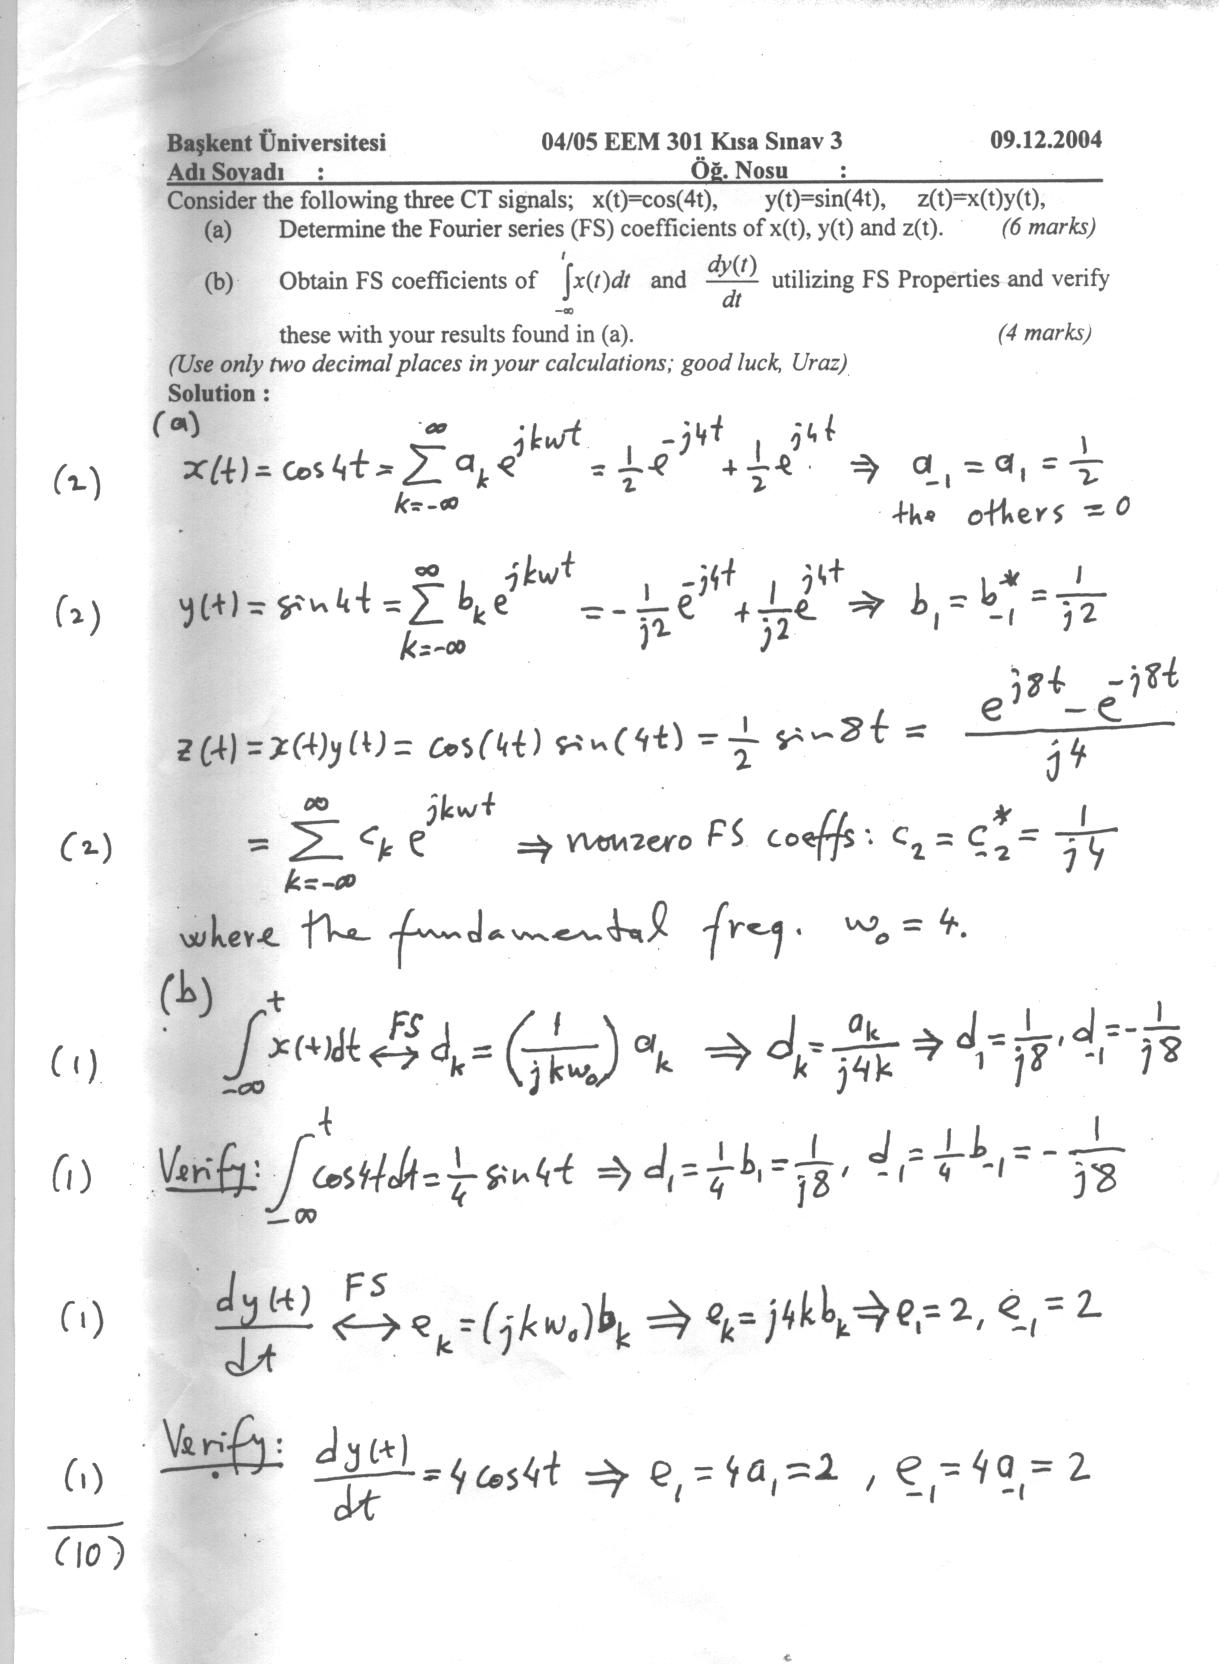 Başkent Üniversitesi 04/05 EEM 301 Kısa Sınav 3 09.12.2004
Adı Soyadı : Öğ. Nosu :
Consider the following three CT signals; x(t)=cos(4t), y(t)=sin(4t), z(t)=x(t)y(t),
(a) Determine the Fourier series (FS) coefficients of x(t), y(t) and z(t). (6 marks)
(b) Obtain FS coefficients of ∫_{-∞}^{t} x(t)dt and dy(t)/dt utilizing FS Properties and verify
these with your results found in (a). (4 marks)
(Use only two decimal places in your calculations; good luck, Uraz)
Solution :
(a)
(2) x(t) = cos 4t = Σ_{k=-∞}^{∞} a_k e^{jkwt} = 1/2 e^{-j4t} + 1/2 e^{j4t} ⇒ a_{-1} = a_1 = 1/2
the others = 0
(2) y(t) = sin 4t = Σ_{k=-∞}^{∞} b_k e^{jkwt} = - 1/j2 e^{-j4t} + 1/j2 e^{j4t} ⇒ b_1 = b_{-1}^* = 1/j2
z(t) = x(t)y(t) = cos(4t) sin(4t) = 1/2 sin 8t = (e^{j8t} - e^{-j8t})/j4
(2) = Σ_{k=-∞}^{∞} c_k e^{jkwt} ⇒ nonzero FS coeffs: c_2 = c_{-2}^* = 1/j4
where the fundamental freq. w_0 = 4.
(b)
(1) ∫_{-∞}^{t} x(t)dt ↔^{FS} d_k = (1/jkw_0) a_k ⇒ d_k = a_k/j4k ⇒ d_1 = 1/j8, d_{-1} = - 1/j8
(1) Verify: ∫_{-∞}^{t} cos4tdt = 1/4 sin4t ⇒ d_1 = 1/4 b_1 = 1/j8, d_{-1} = 1/4 b_{-1} = - 1/j8
(1) dy(t)/dt ↔^{FS} e_k = (jkw_0)b_k ⇒ e_k = j4kb_k ⇒ e_1 = 2, e_{-1} = 2
(1) Verify: dy(t)/dt = 4 cos4t ⇒ e_1 = 4a_1 = 2 , e_{-1} = 4a_{-1} = 2
(10)